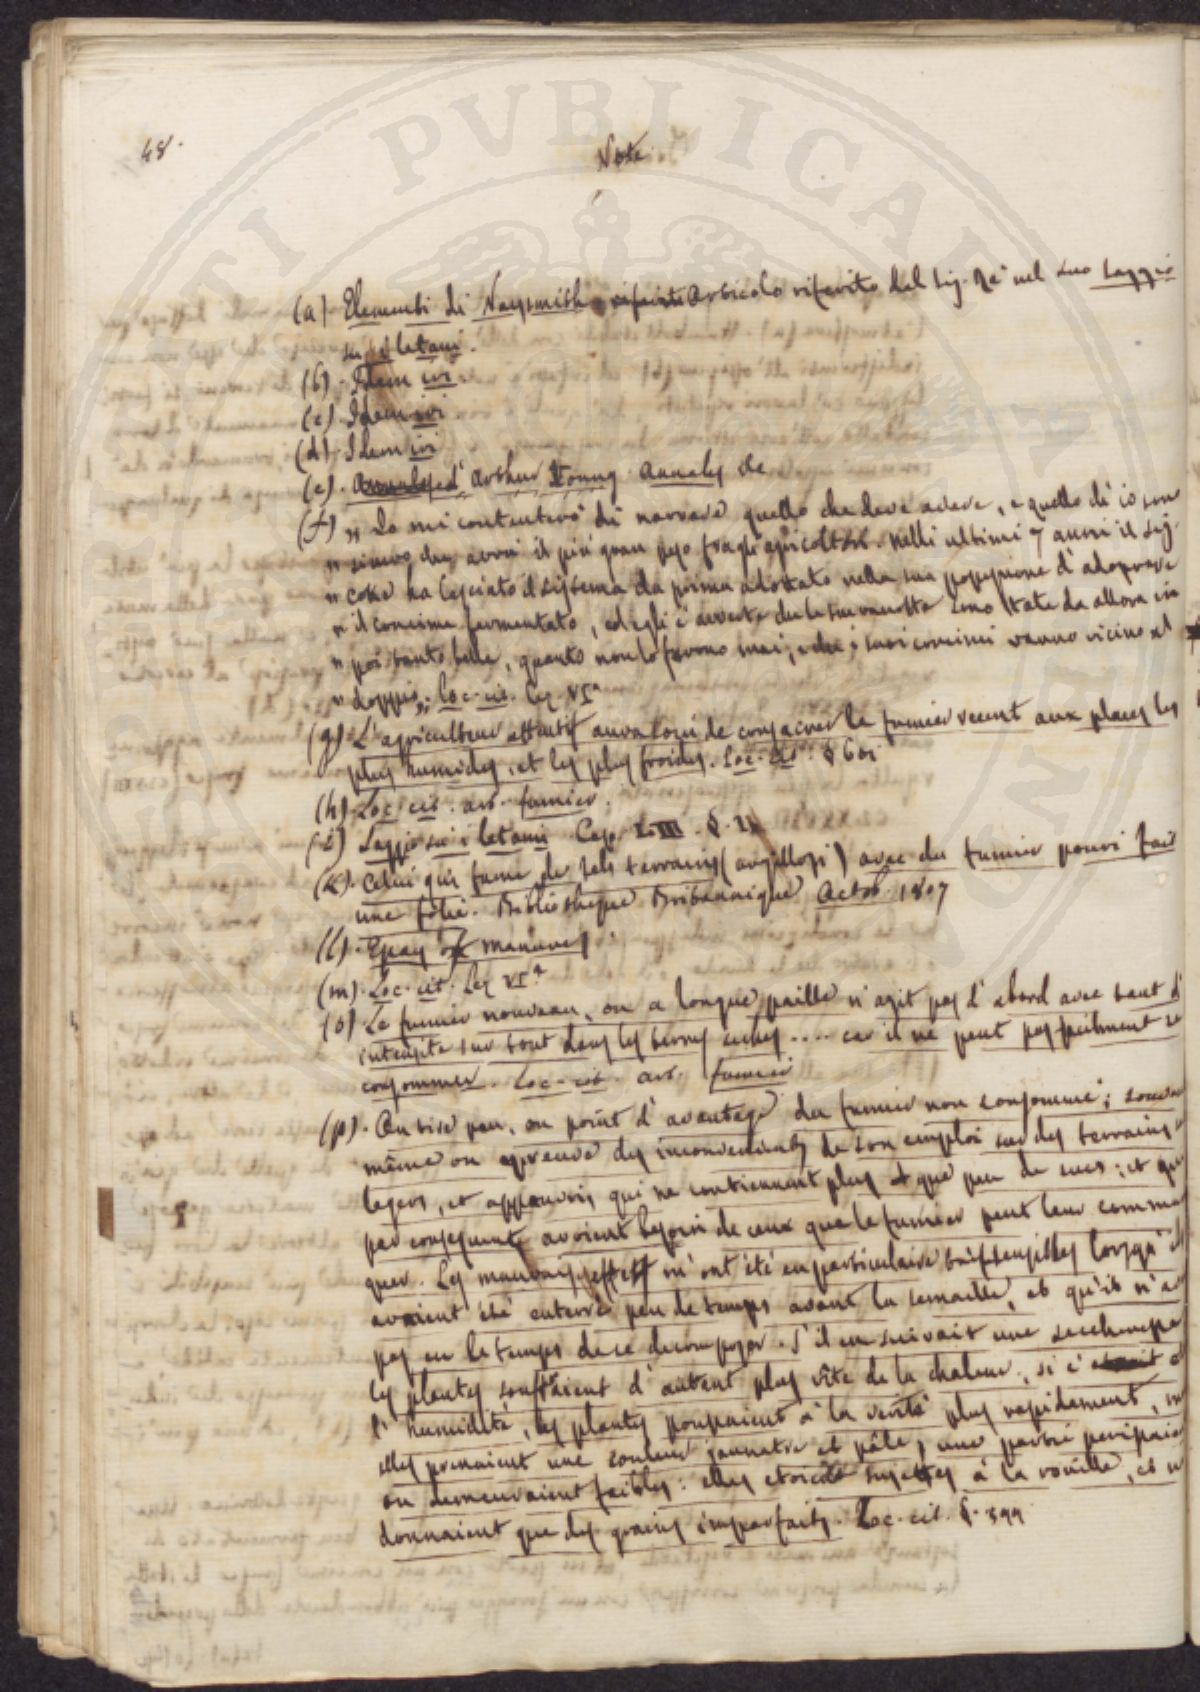 48.
Note
(a) Elementi di Naysmith Articolo riferito dal Sig. Re nel suo Saggio
su i letami.
(b). Idem ivi
(c). Idem ivi
(d). Idem ivi
(e). Arthur Young Annales de
(f) „ Io mi contenterò di narrare quello che deve avere, e quello di io son
„ sicuro che avrà il più gran peso fra gli agricoltori. Nelli ultimi 7 anni il Sig.
„ Coke ha lasciato il sistema da prima adottato nella sua possessione d'adoprare
„ il concime fermentato, ed egli è avverte che le sue raccolte sono state da allora in
„ poi tanto belle, quanto non lo furono mai, e che i suoi concimi vanno vicino al
„ doppio„ loc. cit. Lez VI.ª
(g) L'agriculteur attentif aura soin de consacrer le fumier recent aux places les
plus humides, et les plus froides. Loc. cit. § 601
(h). Loc. cit. art. fumier.
(i) Saggio su i letami Cap. §.
(k). Celui qui fume de tels terrains (argillosi) avec du fumier pouri fait
une folie. Bibliotheque Britannique Octob. 1807
(l). Essay of manures
(m). Loc. cit. Lez VI.ª
(o) Le fumier nouveau, ou a longue paille n'agit pas d'abord avec tant d'
intensité sur tout dans les terres seches .... car il ne peut pas facilment se
consommer. Loc. cit. art. fumier
(p). On tire peu, ou point d'avantage du fumier non consommé; souvent
même on eprouve des inconvenients de son emploi sur des terrains
legers, et appauvris qui ne contiennent plus que peu de sucs; et qui
par consequent avoient besoin de ceux que le fumier peut leur communi
quer. Les mauvais effets m'ont été en particulaire très sensibles lorsqu'ils
avaient été enterré peu de temps avant la semaille, et qu'ils n'av
pas eu le temps de se decomposer. S'il en suivait une secheresse
les plantes souffraient d'autant plus vite de la chaleur, si c'
l'humidité, les plantes poussaient à la verité plus rapidement, m
elles prenaient une couleur jaunatre et pâle, une partie perissaie
ou demeuraient faibles: elles etoient sujettes à la rouille, et n
donnaient que des grains imparfaits. Loc. cit. §. 599